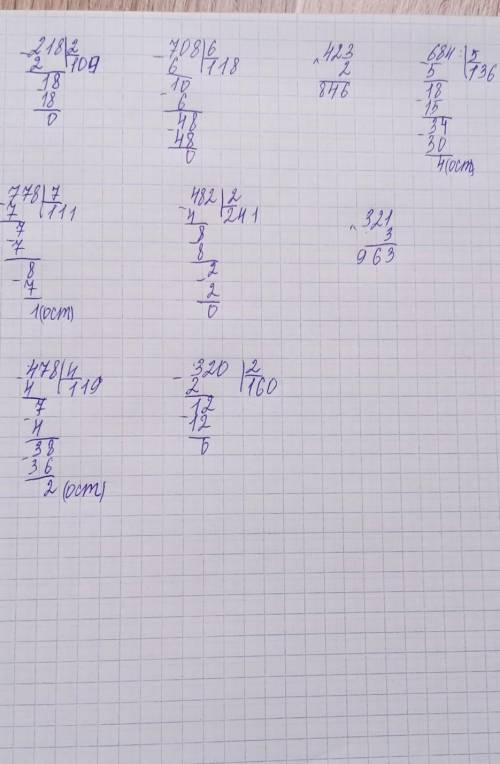 -218|2
2 109
-18
18
0
-708|6
6 118
10
-6
-48
48
0
×423
2
846
-684|5
5 136
-18
15
-34
30
4(ост)
-778|7
7 111
-7
7
-8
7
1(ост)
-482|2
4 241
8
8
-2
2
0
×321
3
963
-478|4
4 119
-7
4
-38
36
2 (ост)
-320|2
2 160
-12
12
0